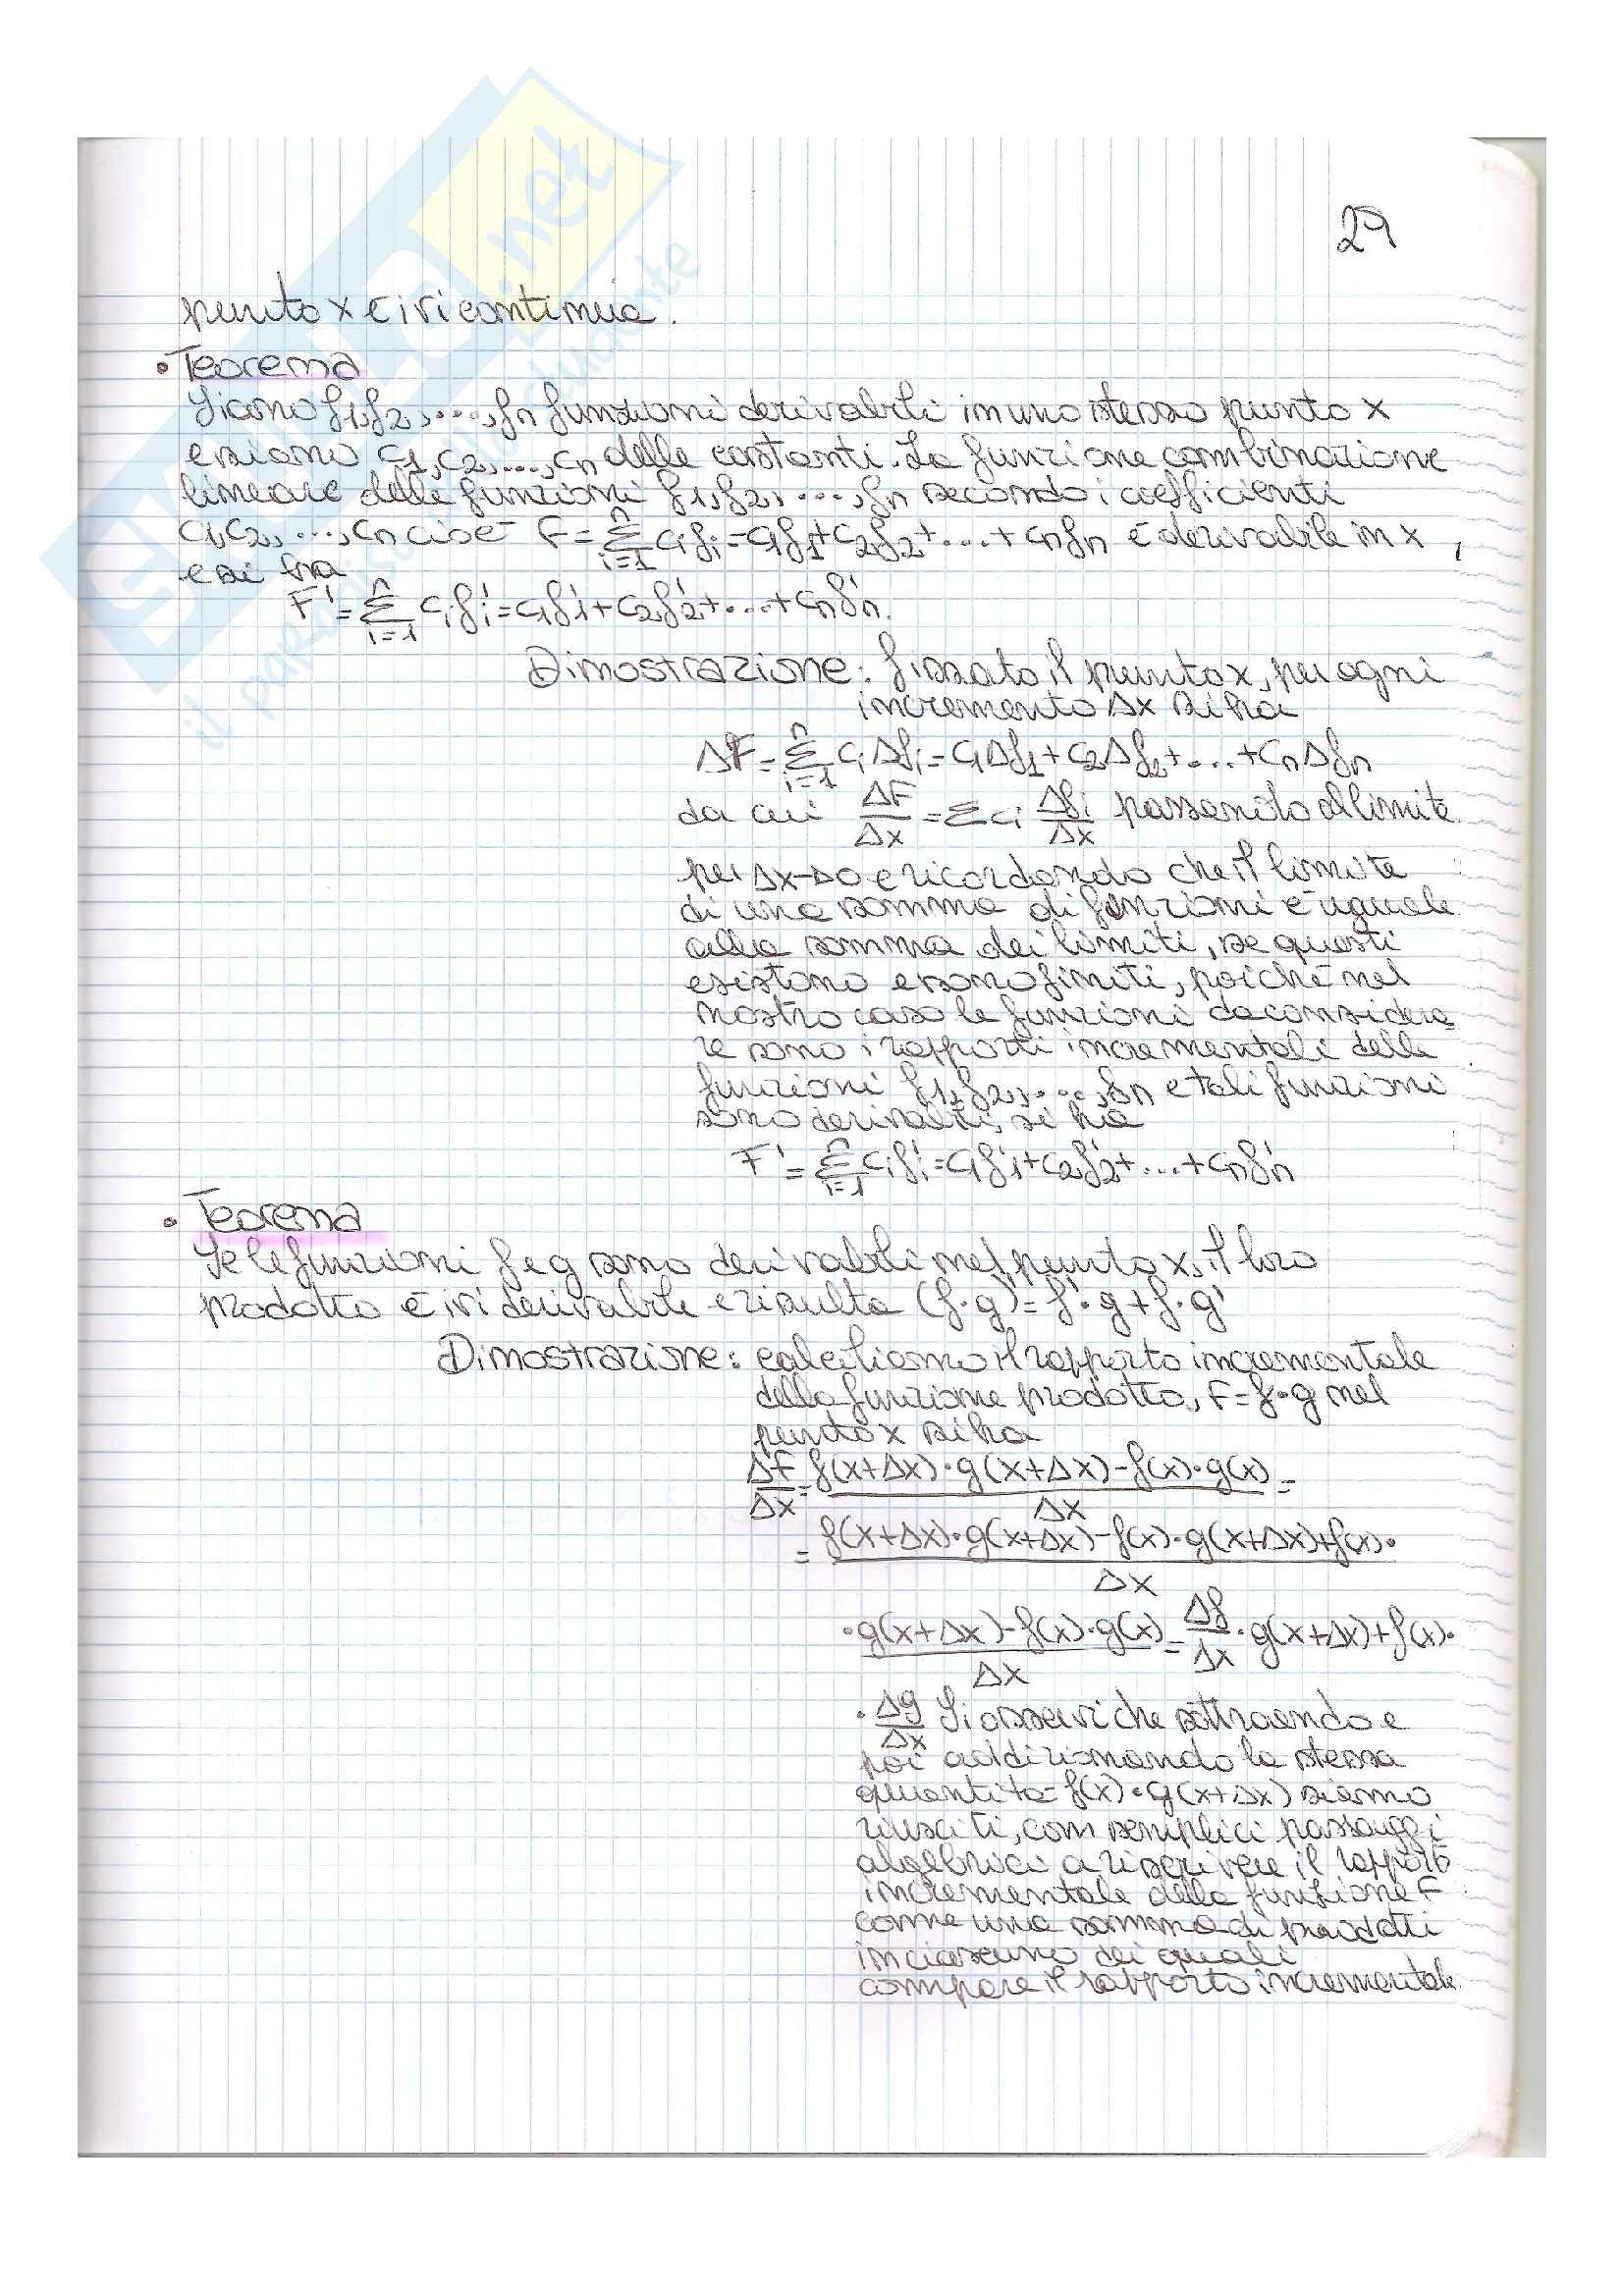 29
punto x è ivi continua.
• Teorema
Siano f1, f2, ...., fn funzioni derivabili in uno stesso punto x
e siano c1, c2, ..., cn delle costanti. La funzione combinazione
lineare delle funzioni f1, f2, ..., fn secondo i coefficienti
c1, c2, ..., cn cioè F = Σ_{i=1}^{n} ci fi = c1f1 + c2f2 + ... + cnfn è derivabile in x,
e si ha
F' = Σ_{i=1}^{n} ci f'i = c1f'1 + c2f'2 + ... + cnf'n.
Dimostrazione: fissato il punto x, per ogni
incremento Δx si ha
ΔF = Σ_{i=1}^{n} ci Δfi = c1Δf1 + c2Δf2 + ... + cnΔfn
da cui ΔF/Δx = Σ ci Δfi/Δx passando al limite
per Δx→0 e ricordando che il limite
di una somma di funzioni è uguale
alla somma dei limiti, se questi
esistono e sono finiti, poichè nel
nostro caso le funzioni da considera
re sono i rapporti incrementali delle
funzioni f1, f2, ..., fn e tali funzioni
sono derivabili, si ha
F' = Σ_{i=1}^{n} ci f'i = c1f'1 + c2f'2 + ... + cnf'n
• Teorema
Se le funzioni f e g sono derivabili nel punto x, il loro
prodotto è ivi derivabile e risulta (f·g)' = f'·g + f·g'
Dimostrazione: calcoliamo il rapporto incrementale
della funzione prodotto, F = f·g nel
punto x si ha
ΔF/Δx = f(x+Δx)·g(x+Δx) - f(x)·g(x) / Δx =
= f(x+Δx)·g(x+Δx) - f(x)·g(x+Δx) + f(x)· / Δx
·g(x+Δx) - f(x)·g(x) / Δx = Δf/Δx · g(x+Δx) + f(x)·
· Δg/Δx Si osservi che sottraendo e
poi addizionando la stessa
quantità f(x)·g(x+Δx) siamo
riusciti, con semplici passaggi
algebrici a riscrivere il rapporto
incrementale della funzione F
come una somma di prodotti
in ciascuno dei quali
compare il rapporto incrementale